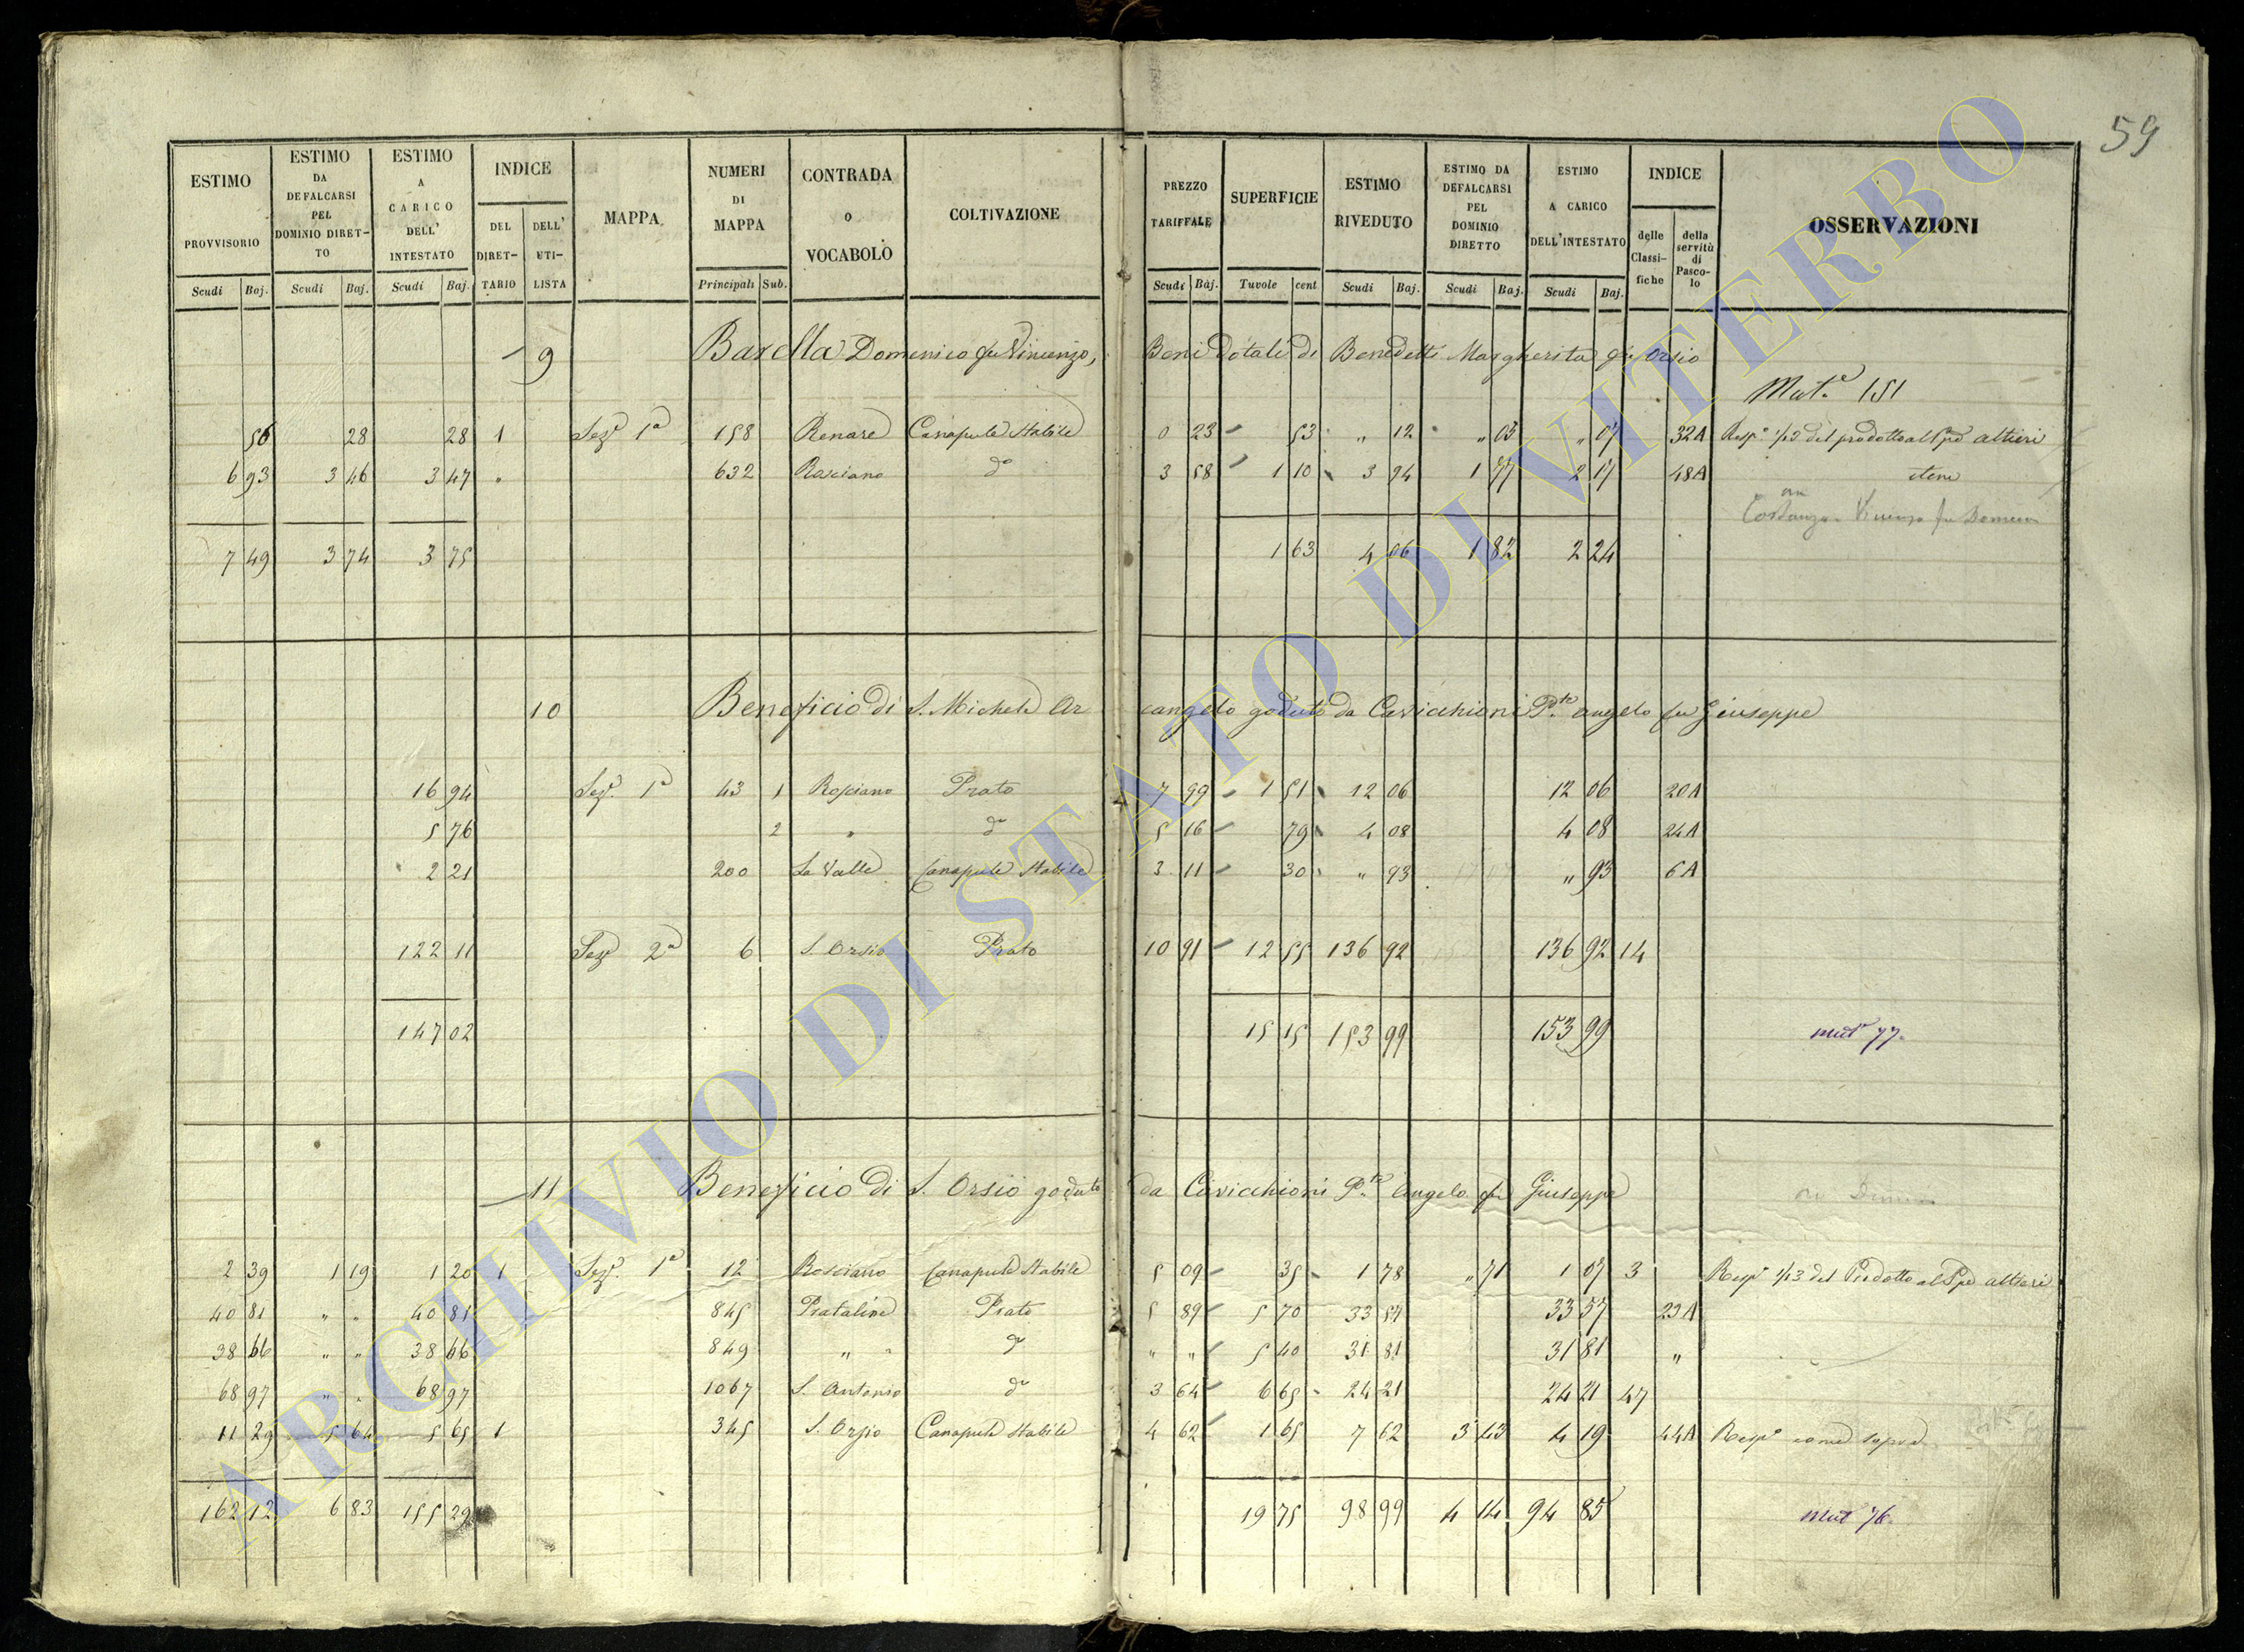 59
ESTIMO PROVVISORIO Scudi Baj.
ESTIMO DA DEFALCARSI PEL DOMINIO DIRETTO Scudi Baj.
ESTIMO A CARICO DELL' INTESTATO Scudi Baj.
INDICE DEL DIRETTARIO DELL' UTILISTA
MAPPA
NUMERI DI MAPPA Principali Sub.
CONTRADA O VOCABOLO
COLTIVAZIONE
PREZZO TARIFFALE Scudi Baj.
SUPERFICIE Tavole cent
ESTIMO RIVEDUTO Scudi Baj.
ESTIMO DA DEFALCARSI PEL DOMINIO DIRETTO Scudi Baj.
ESTIMO A CARICO DELL'INTESTATO Scudi Baj.
INDICE delle Classifiche della servitù di Pascolo
OSSERVAZIONI
9 Barella Domenico fu Vincenzo, Beni Dotali di Benedetti Margherita fu Orsio
Mut.e 151
56 28 28 1 Sez.e 1a 158 Renare Canapule Stabile 0 23 53 " 12 " 05 " 07 32A Resp. 1/13 del prodotto al Ppe altieri
6 93 3 46 3 47 " 632 Rosciano do 3 58 1 10 3 94 1 77 2 17 48A item
Costanzo Vincenzo fu Domenico
7 49 3 74 3 75 1 63 4 06 1 82 2 24
10 Beneficio di S. Michele Arcangelo goduto da Cavicchioni P.te angelo fu Giuseppe
16 94 Sez. 1a 43 1 Rosciano Prato 7 99 1 51 12 06 12 06 20A
5 76 2 " do 5 16 79 4 08 4 08 24A
2 21 200 La Valle Canapule Stabile 3 11 30 " 93 " 93 6A
122 11 Sez 2a 6 S. Orsio Prato 10 91 12 55 136 92 136 92 14
147 02 15 15 153 99 153 99 mut 77.
11 Beneficio di S. Orsio goduto da Cavicchioni P.te angelo fu Giuseppe
2 39 1 19 1 20 1 Sez. 1a 12 Rosciano Canapule Stabile 5 09 35 1 78 " 71 1 07 3 Resp. 1/13 del Prodotto al Ppe altieri
40 81 " " 40 81 845 Prataline Prato 5 89 5 70 33 57 33 57 23A
38 66 " " 38 66 849 " " do " " 5 40 31 81 31 81 "
68 97 " " 68 97 1067 S. Antonio do 3 64 6 65 24 21 24 21 47
11 29 5 64 5 65 1 345 S. Orsio Canapule Stabile 4 62 1 65 7 62 3 43 4 19 44A Resp. come sopra
162 12 6 83 155 29 19 75 98 99 4 14 94 85 mut 76.
ARCHIVIO DI STATO DI VITERBO